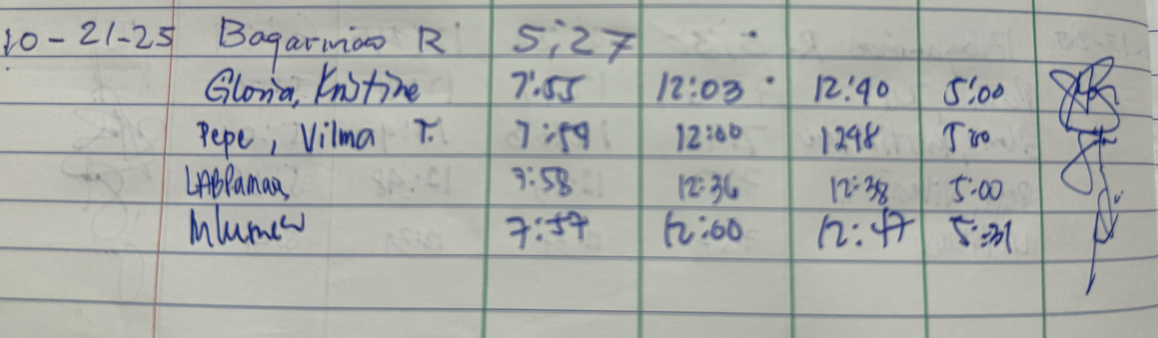 10-21-25 Bagarinao R 5:27
Gloria, Kristine 7:55 12:03 12:40 5:00
Pepe, Vilma T. 7:59 12:00 1248 500
7:58 12:36 12:38 5:00
7:57 12:00 12:47 5:31